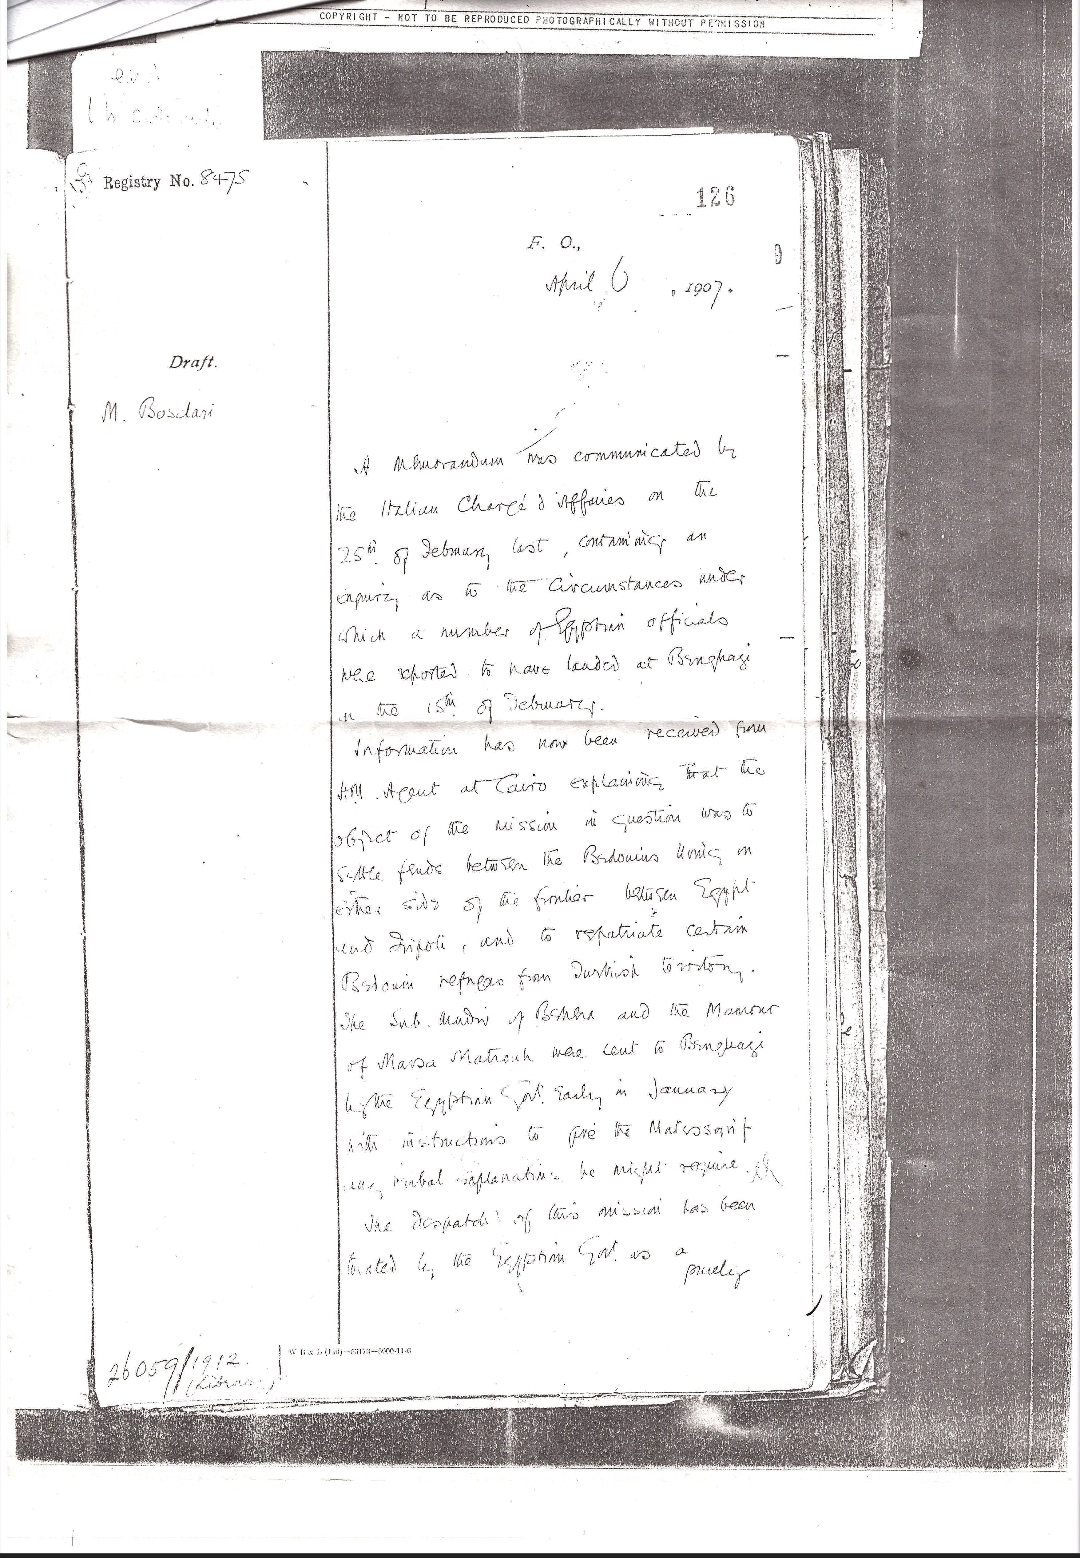 COPYRIGHT - NOT TO BE REPRODUCED PHOTOGRAPHICALLY WITHOUT PERMISSION
Registry No. 8475
126
F. O.,
April 6, 1907.
Draft.
M. Bosdari
A Memorandum was communicated by
the Italian Chargé d'Affaires on the
25th of February last, containing an
enquiry as to the circumstances under
which a number of Egyptian officials
were reported to have landed at Benghazi
on the 15th of February.
Information has now been received from
H.M. Agent at Cairo explaining that the
object of the mission in question was to
settle feuds between the Bedouins living on
either side of the frontier between Egypt
and Tripoli, and to repatriate certain
Bedouin refugees from Turkish territory.
The Sub. Mudir of Behera and the Mamour
of Marsa Matrouh were sent to Benghazi
by the Egyptian Govt. early in January
with instructions to give the Mutessarif
any verbal explanations he might require.
The despatch of this mission has been
treated by the Egyptian Govt. as a
purely
26059/1912
(Library)